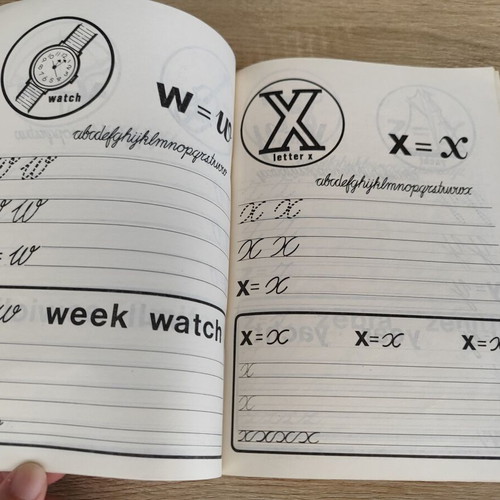 watch
w = w
abcdefghijklmnopqrstuvw
w w
w w
= w
w week watch
X
letter x
x = x
abcdefghijklmnopqrstuvwx
x x
x x
x = x
x = x x = x x = x
x
x
xxxxx